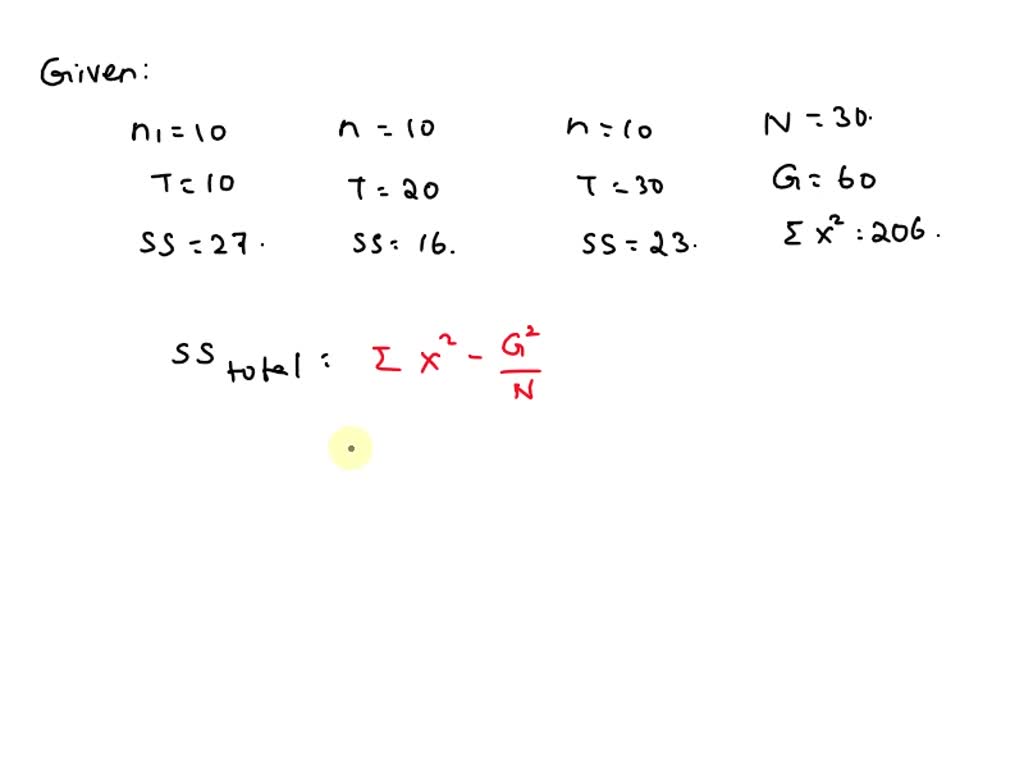 Given:
n₁ = 10 n = 10 n = 10 N = 30.
T = 10 T = 20 T = 30 G = 60
SS = 27. SS = 16. SS = 23. Σ x² : 206.
SS total : Σ x² - G²/N